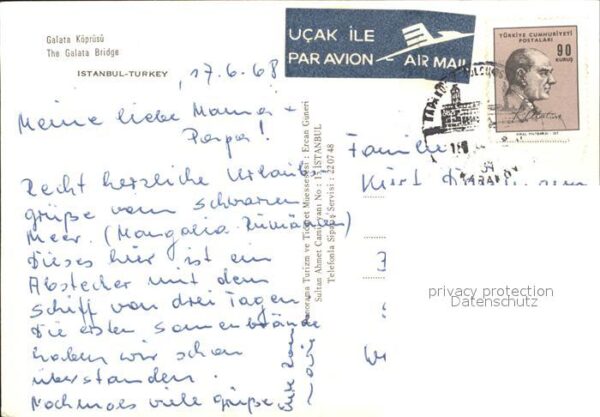 Galata Köprüsü
The Galata Bridge
ISTANBUL-TURKEY
UÇAK İLE
PAR AVION - AIR MAIL
TÜRKİYE CUMHURİYETİ
POSTALARI
90
KURUŞ
17.6.68
Meine liebe Mama +
Papa!
Recht herzliche Urlaubs
grüße vom schwarzen
Meer. (Mangalia-Rumänien)
Dieses hier ist ein
Abstecher mit dem
Schiff von drei Tagen.
Die ersten Sonnenbrände
haben wir schon
überstanden.
Nochmals viele Grüße
Panorama Turizm ve Ticaret Müessesesi : Ercan Güneri
Sultan Ahmet Camii yanı No : 1 İSTANBUL
Telefonla Sipariş Servisi : 22 07 48
Familie
Kurt
privacy protection
Datenschutz